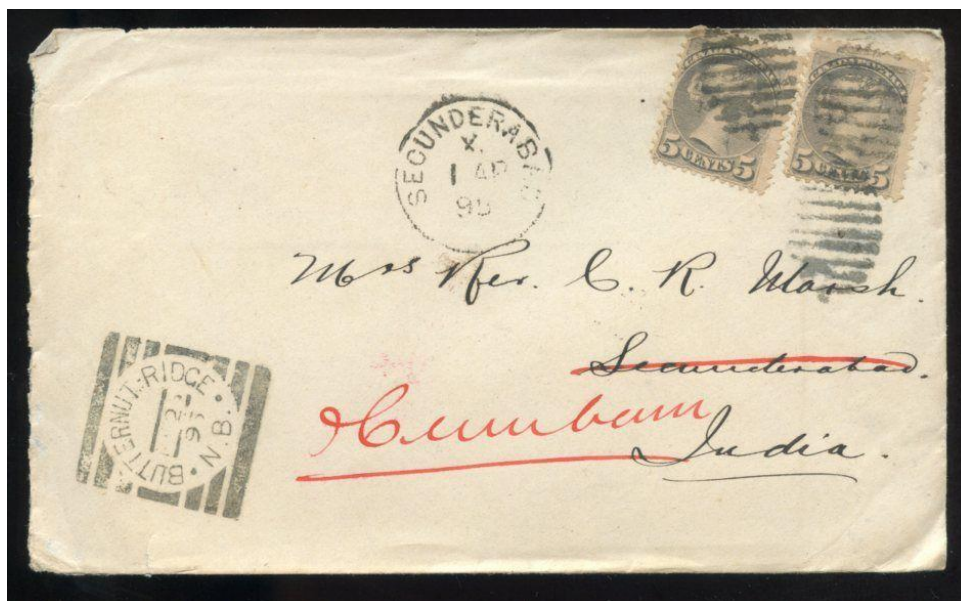 5 CENTS 5
5 CENTS 5
SECUNDERABAD
X.
1 AP
95
Mrs Rev. C. R. Marsh.
Secunderabad.
Cumbum
India.
BUTTERNUT RIDGE • N.B. •
95